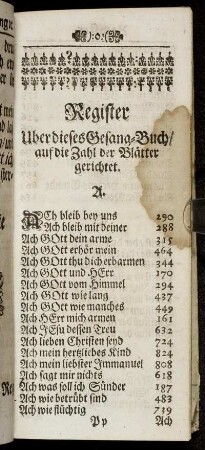 ):o:(
Register
Uber dieses Gesang-Buch/
auf die Zahl der Blätter
gerichtet.
A.
ACh bleib bey uns 290
Ach bleib mit deiner 288
Ach GOtt dein arme 315
Ach GOtt erhör mein 464
Ach GOtt thu dich erbarmen 344
Ach GOtt und HErr 170
Ach GOtt vom Himmel 294
Ach GOtt wie lang 437
Ach GOtt wie manches 449
Ach HErr mich armen 161
Ach JEsu dessen Treu 632
Ach lieben Christen seyd 724
Ach mein hertzliebes Kind 824
Ach mein liebster Immanuel 808
Ach sagt mir nichts 618
Ach was soll ich Sünder 187
Ach wie betrübt sind 483
Ach wie flüchtig 739
Pp Ach